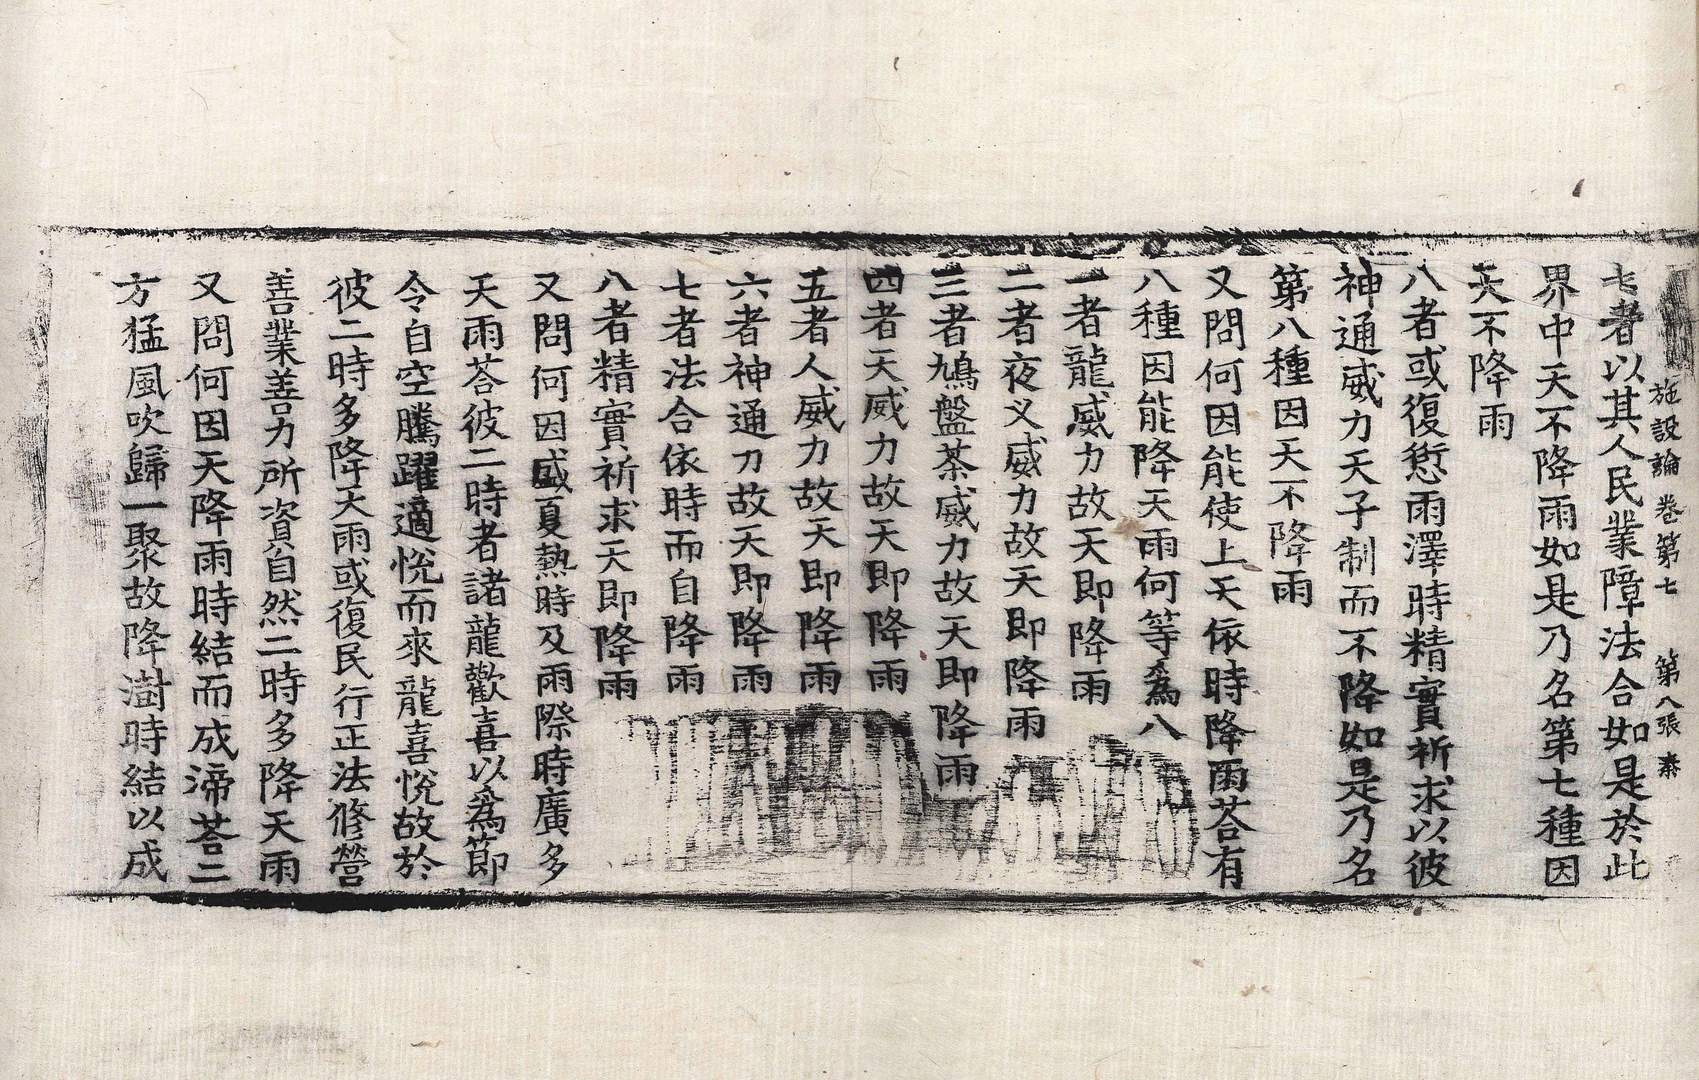 施設論卷第七 第八張 柰
七者以其人民業障法合如是於此
界中天不降雨如是乃名第七種因
天不降雨
八者或復愆雨澤時精實祈求以彼
神通威力天子制而不降如是乃名
第八種因天不降雨
又問何因能使上天依時降雨荅有
八種因能降天雨何等爲八
一者龍威力故天即降雨
二者夜义威力故天即降雨
三者鳩盤茶威力故天即降雨
四者天威力故天即降雨
五者人威力故天即降雨
六者神通力故天即降雨
七者法合依時而自降雨
八者精實祈求天即降雨
又問何因盛夏熱時及雨際時廣多
天雨荅彼二時者諸龍歡喜以爲節
令自空騰躍適悅而來龍喜悅故於
彼二時多降天雨或復民行正法修營
善業善力所資自然二時多降天雨
又問何因天降雨時結而成渧荅二
方猛風吹歸一聚故降澍時結以成